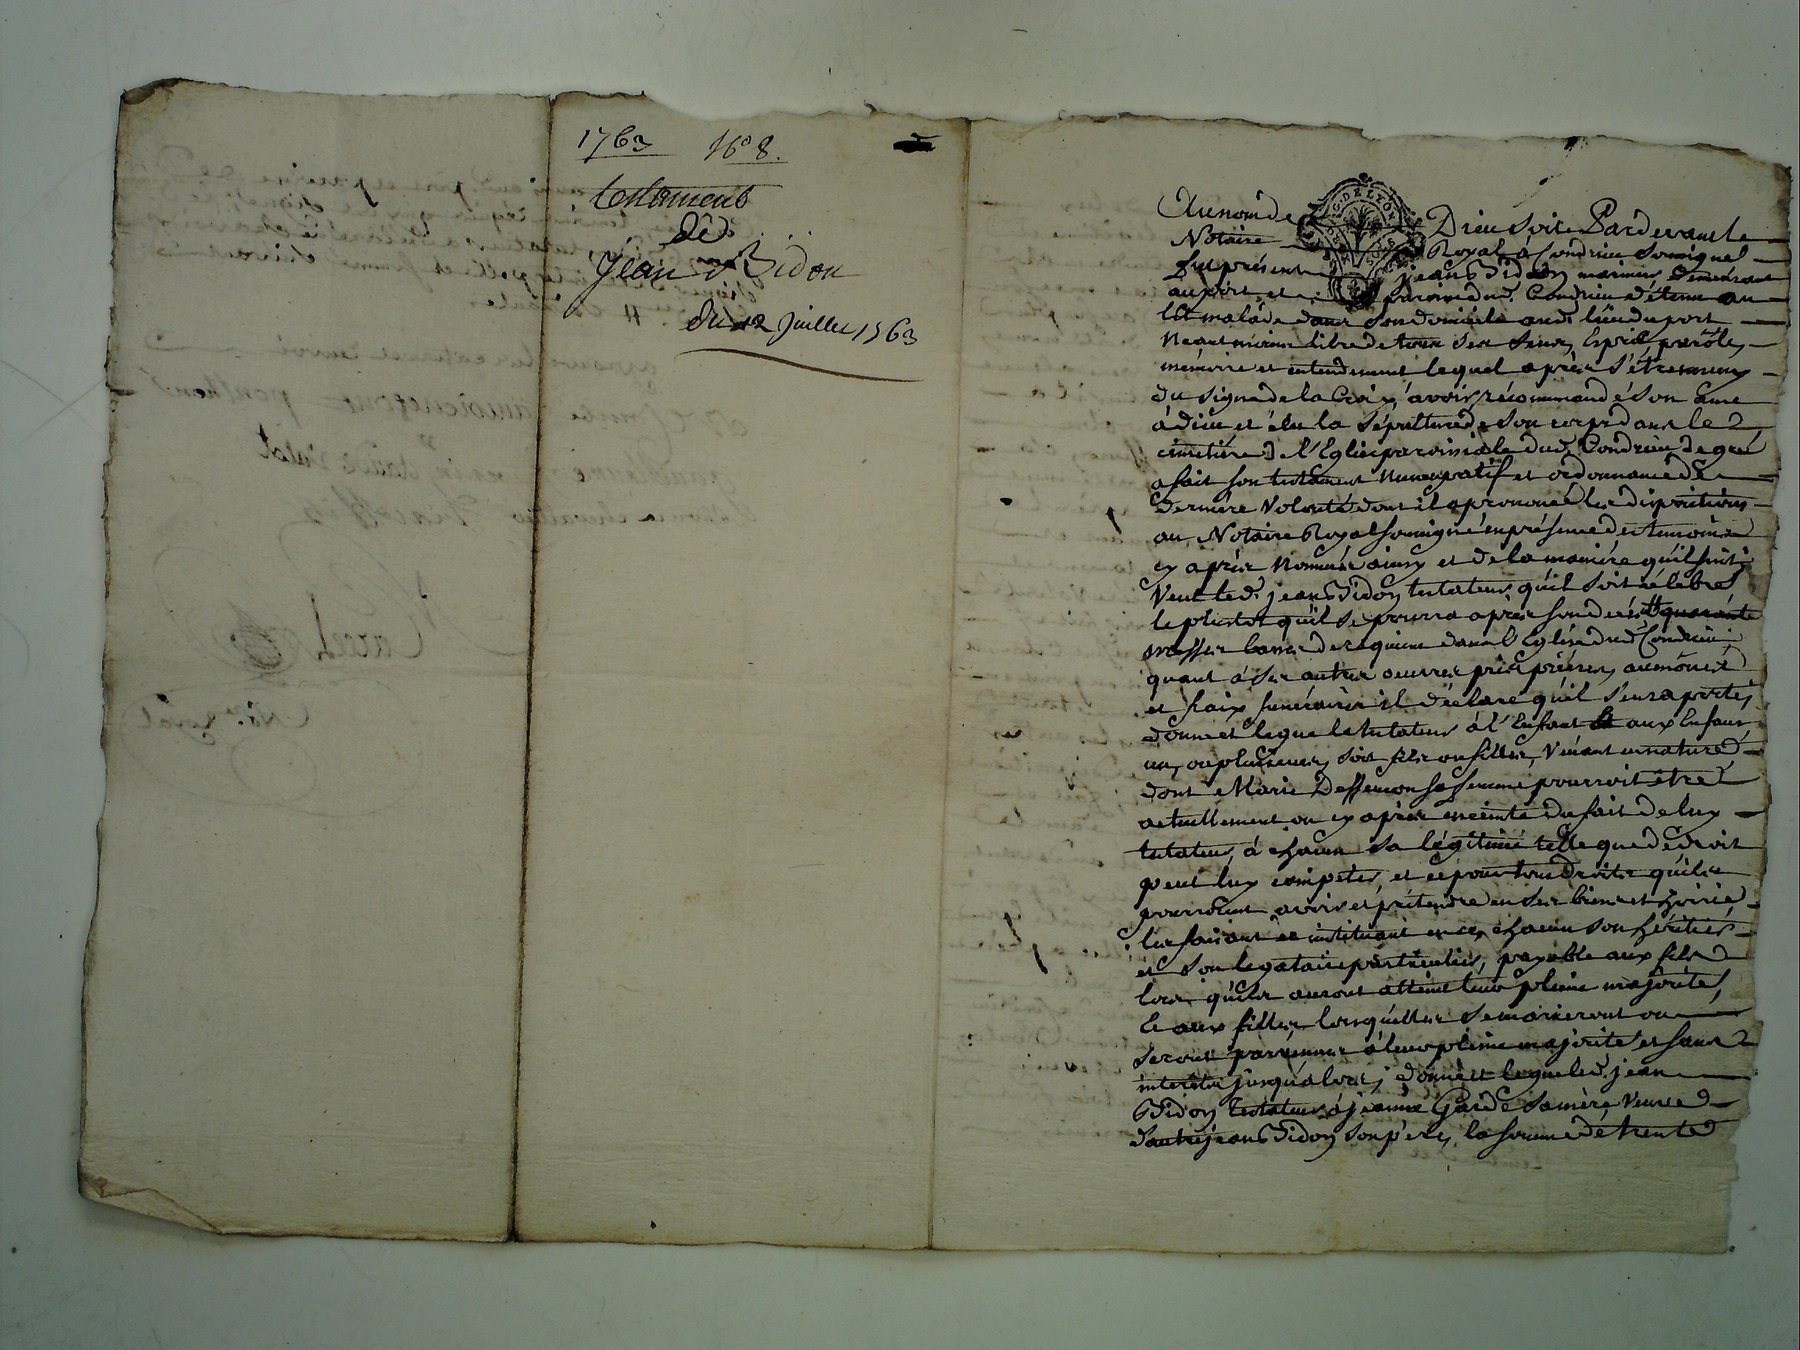 1763 N° 8.
testament
de
Jean Bidon
du 12 juillet 1763
G. DE LYON
Au nom de Dieu soit. Pardevant le
Notaire Royal à Condrieu soussigné
fut présent jean Bidon marinier demeurant
au port et paroisse dud. Condrieu détenu au
lit malade dans son domicile aud. lieu du port
neantmoins libre de tous ses sens, esprit, parôle,
mémoire et entendement lequel après s'être muny
du signe de la Croix, avoir récommandé son ame
à dieu et élu la sépulture de son corps dans le
cimetière de l'Eglise paroissiale dud. Condrieu de gré
a fait son testament nuncupatif et ordonnance de
dernière volonté dont il a prononcé les dispositions
au Notaire Royal soussigné en présence des temoins
cy après nommés ainsy et de la manière qu'il suit
Veut led. jean Bidon testateur qu'il soit célébré
le plustot qu'il se pourra après son decès quarante
messes basses de requiem dans l'Eglise dud. Condrieu
quant à ses autres oeuvres pies prières, aumônes
et fraix funéraires il déclare qu'il s'en raporte,
donne et legue le testateur à l'Enfant aux Enfans
un, ou plusieurs, soit fils ou filles, Venant en nature
dont Marie Desseimon sa femme pourroit être
actuellement ou cy après enceinte du fait de luy
testateur, à chacun sa légitime telle que de droit
peut luy competer, et ce pour tous droits qu'ils
pourroient avoir et prétendre en ses biens et hoirie
les faisant et instituant en ce, chacun son héritier
et son legataire particulier, payable aux fils
lors qu'ils auront atteint leur pleine majorité,
Et aux filles lorsqu'elles se marieront ou
seront parvenues à leur pleine majorité et sans
interêts jusqu'alors; donne et legue led. jean
Bidon testateur à jeanne Garde sa mère, Veuve
d'autre jean Bidon son père, la somme de trente